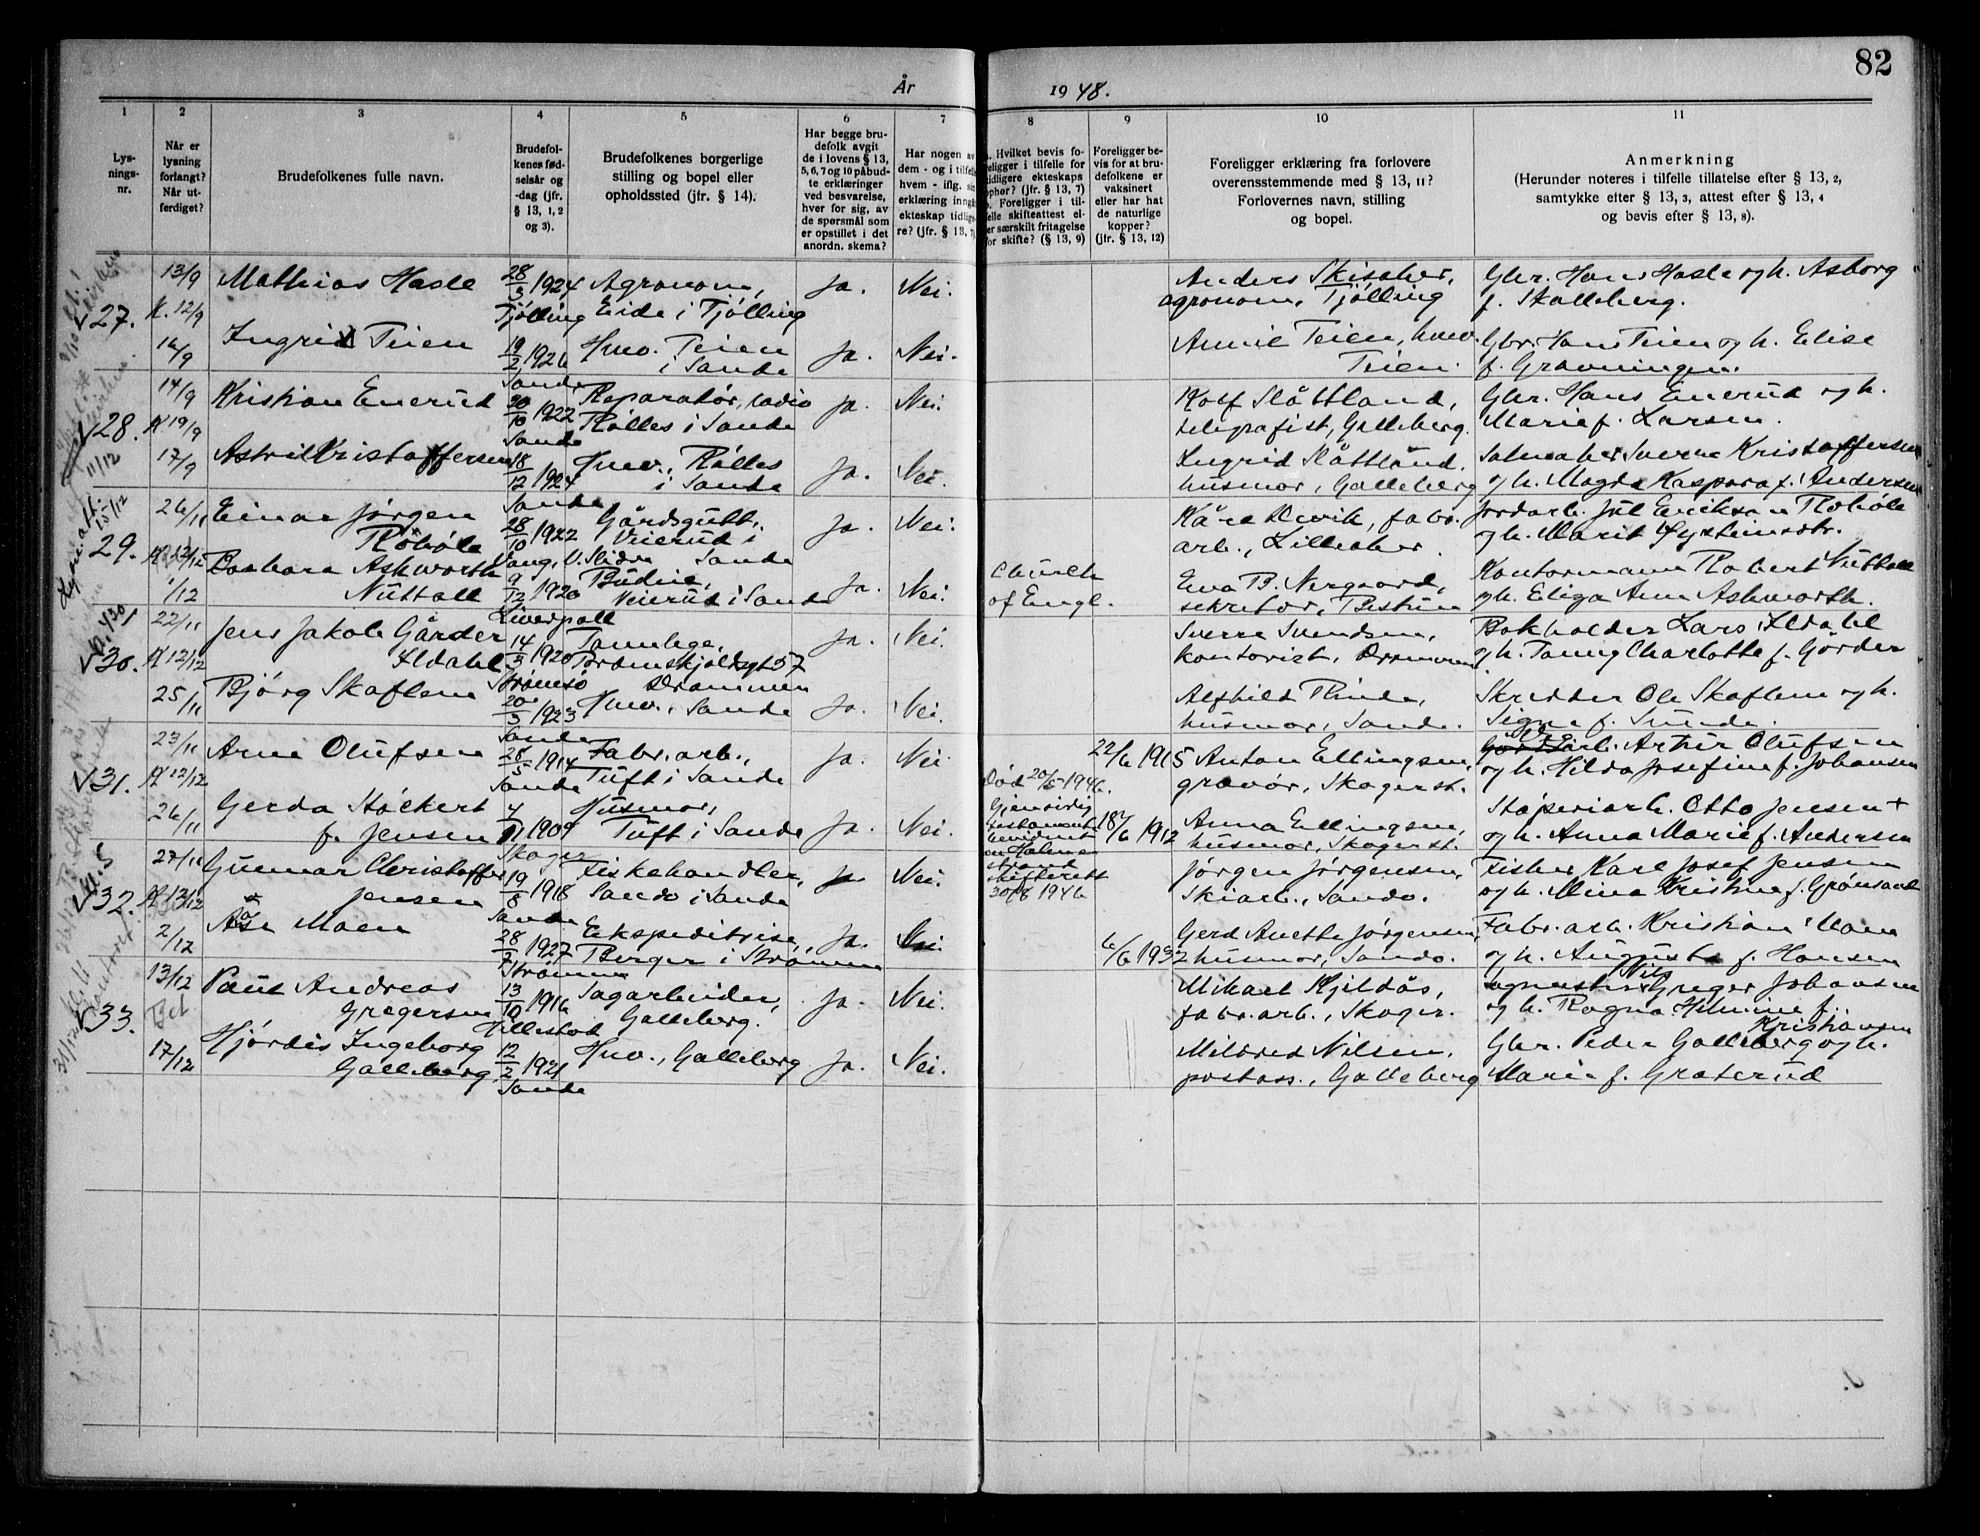 82
År 1948.
1
Lys-
nings-
nr.
2
Når er
lysning
forlangt?
Når ut-
ferdiget?
3
Brudefolkenes fulle navn.
4
Brudefol-
kenes fød-
selsår og
-dag (jfr.
§ 13, 1, 2
og 3).
5
Brudefolkenes borgerlige
stilling og bopel eller
opholdssted (jfr. § 14).
6
Har begge bru-
defolk avgit
de i lovens § 13,
5, 6, 7 og 10 påbud-
te erklæringer
ved besvarelse,
hver for sig, av
de spørsmål som
er opstillet i det
anordn. skema?
7
Har nogen av
dem - og i tilfelle
hvem - iflg. sin
erklæring inngått
ekteskap tidlige-
re? (jfr. § 13, 7)
8
Hvilket bevis fo-
religger i tilfelle for
tidligere ekteskaps
ophør? (jfr. § 13, 7)
Foreligger i til-
felle skifteattest el-
er særskilt fritagelse
for skifte? (§ 13, 9)
9
Foreligger be-
vis for at bru-
defolkene er
vaksinert
eller har hat
de naturlige
kopper?
(jfr. § 13, 12)
10
Foreligger erklæring fra forlovere
overensstemmende med § 13, 11?
Forlovernes navn, stilling
og bopel.
11
Anmerkning
(Herunder noteres i tilfelle tillatelse efter § 13, 2,
samtykke efter § 13, 3, attest efter § 13, 4
og bevis efter § 13, 8).
27.
13/9
K. 12/9
Mathias Hasle
28/3 1924
Tjølling
Agronom,
Eide i Tjølling
Ja.
Nei.
Anders Skisaker,
agronom, Tjølling
Gbr. Hans Hasle og h. Asborg
f. Skalleberg.
16/9
Ingrid Teien
19/2 1926
Sande
Hmv. Teien
i Sande
Ja.
Nei.
Annie Teien, hmv.
Teien.
Gbr. Hans Teien og h. Elise
f. Gravningen.
28.
14/9
K 19/9
Kristian Enerud
20/10 1922
Sande
Reparatør, radio
Rølles i Sande
Ja.
Nei.
Rolf Slåttland,
telegrafist, Galleberg.
Gbr. Hans Enerud og h.
Marie f. Larsen.
11/12
17/9
Astrid Kristoffersen
18/12 1924
Sande
Hmv., Rølles
i Sande
Ja.
Nei.
Ingrid Slåttland.
husmor, Galleberg
Salmaker Sverre Kristoffersen
og h. Magda Kaspara f. Andersen
29.
15/12
26/11
K 12/12
Einar Jørgen
Robøle
28/10 1922
Vang, V. Slidre
Gårdsgutt,
Veierud i
Sande
Ja.
Nei.
Kåre Dirvik, fabr.
arb., Lilleaker.
Jordarb. Jul Erikson Robøle
og h. Marit Øysteinsdtr.
1/12
Barbara Ashworth
Nuttall
9/12 1920
Liverpoll
Budeie,
Veierud i Sande
Ja.
Nei.
Church
of Engl.
Eva B. Nergaard,
sekretær, Bestum
Kontormann Robert Nuttall
og h. Eliza Ann Ashworth.
30.
22/11
K 12/12
Jens Jakob Gårder
Ildahl
14/3 1920
Strømsø
Tannlege,
Tordenskjoldsgt 57
Drammen
Ja.
Nei.
Sverre Svendsen,
kontorist, Drammen
Bokholder Lars Ildahl
og h. Fanny Charlotte f. Gårder
25/11
Bjørg Skaflem
20/3 1923
Sande
Hmv., Sande
Ja.
Nei.
Alfhild Rinde,
husmor, Sande.
Skredder Ole Skaflem og h.
Signe f. Sunde.
31.
23/11
K 12/12
Arne Olufsen
28/5 1914
Sande
Fabr. arb.,
Tuft i Sande
Ja.
Nei.
22/6 1915
Anton Ellingsen,
gravør, Skoger st.
arb. Artur Olufsen
og h. Hilda Josefine f. Johansen
26/11
Gerda Støckert
f. Jensen
4/11 1909
Skoger
Husmor,
Tuft i Sande
Ja.
Nei.
Død 20/5 1946.
Gjensidig
30/8 1946
18/6 1912
Anna Ellingsen,
husmor, Skoger st.
Støperiarb. Otto Jensen +
og h. Anna Marie f. Andersen
32.
27/11
K 13/12
Gunnar Christoffer
Jensen
19/8 1918
Sande
Fiskehandler,
Sando i Sande
Ja
Nei.
Jørgen Jørgensen,
Skiarb., Sando.
Fisker Karl Josef Jensen
og h. Mina Kristine f. Grønsand
2/12
Åse Moen
28/2 1927
Strømm
Ekspeditrise,
Berger i Strømm
Ja.
Nei
6/6 1932
Gerd Anette Jørgensen,
husmor, Sando.
Fabr. arb. Kristian Moen
og h. Augusta f. Hansen
33.
13/12
Bet
Paul Andreas
Gregersen
13/10 1916
Hillestad
Sagarbeider,
Galleberg.
Ja.
Nei.
Mikael Kjildås,
fabr. arb., Skoger.
Nils Greger Johansen
og h. Ragna Helmine f.
Kristiansen
17/12
Hjørdis Ingeborg
Galleberg
12/2 1921
Sande
Hmv., Galleberg
Ja.
Nei.
Mildred Nilsen,
postass., Galleberg
Gbr. Peder Galleberg og h.
Marie f. Graterud